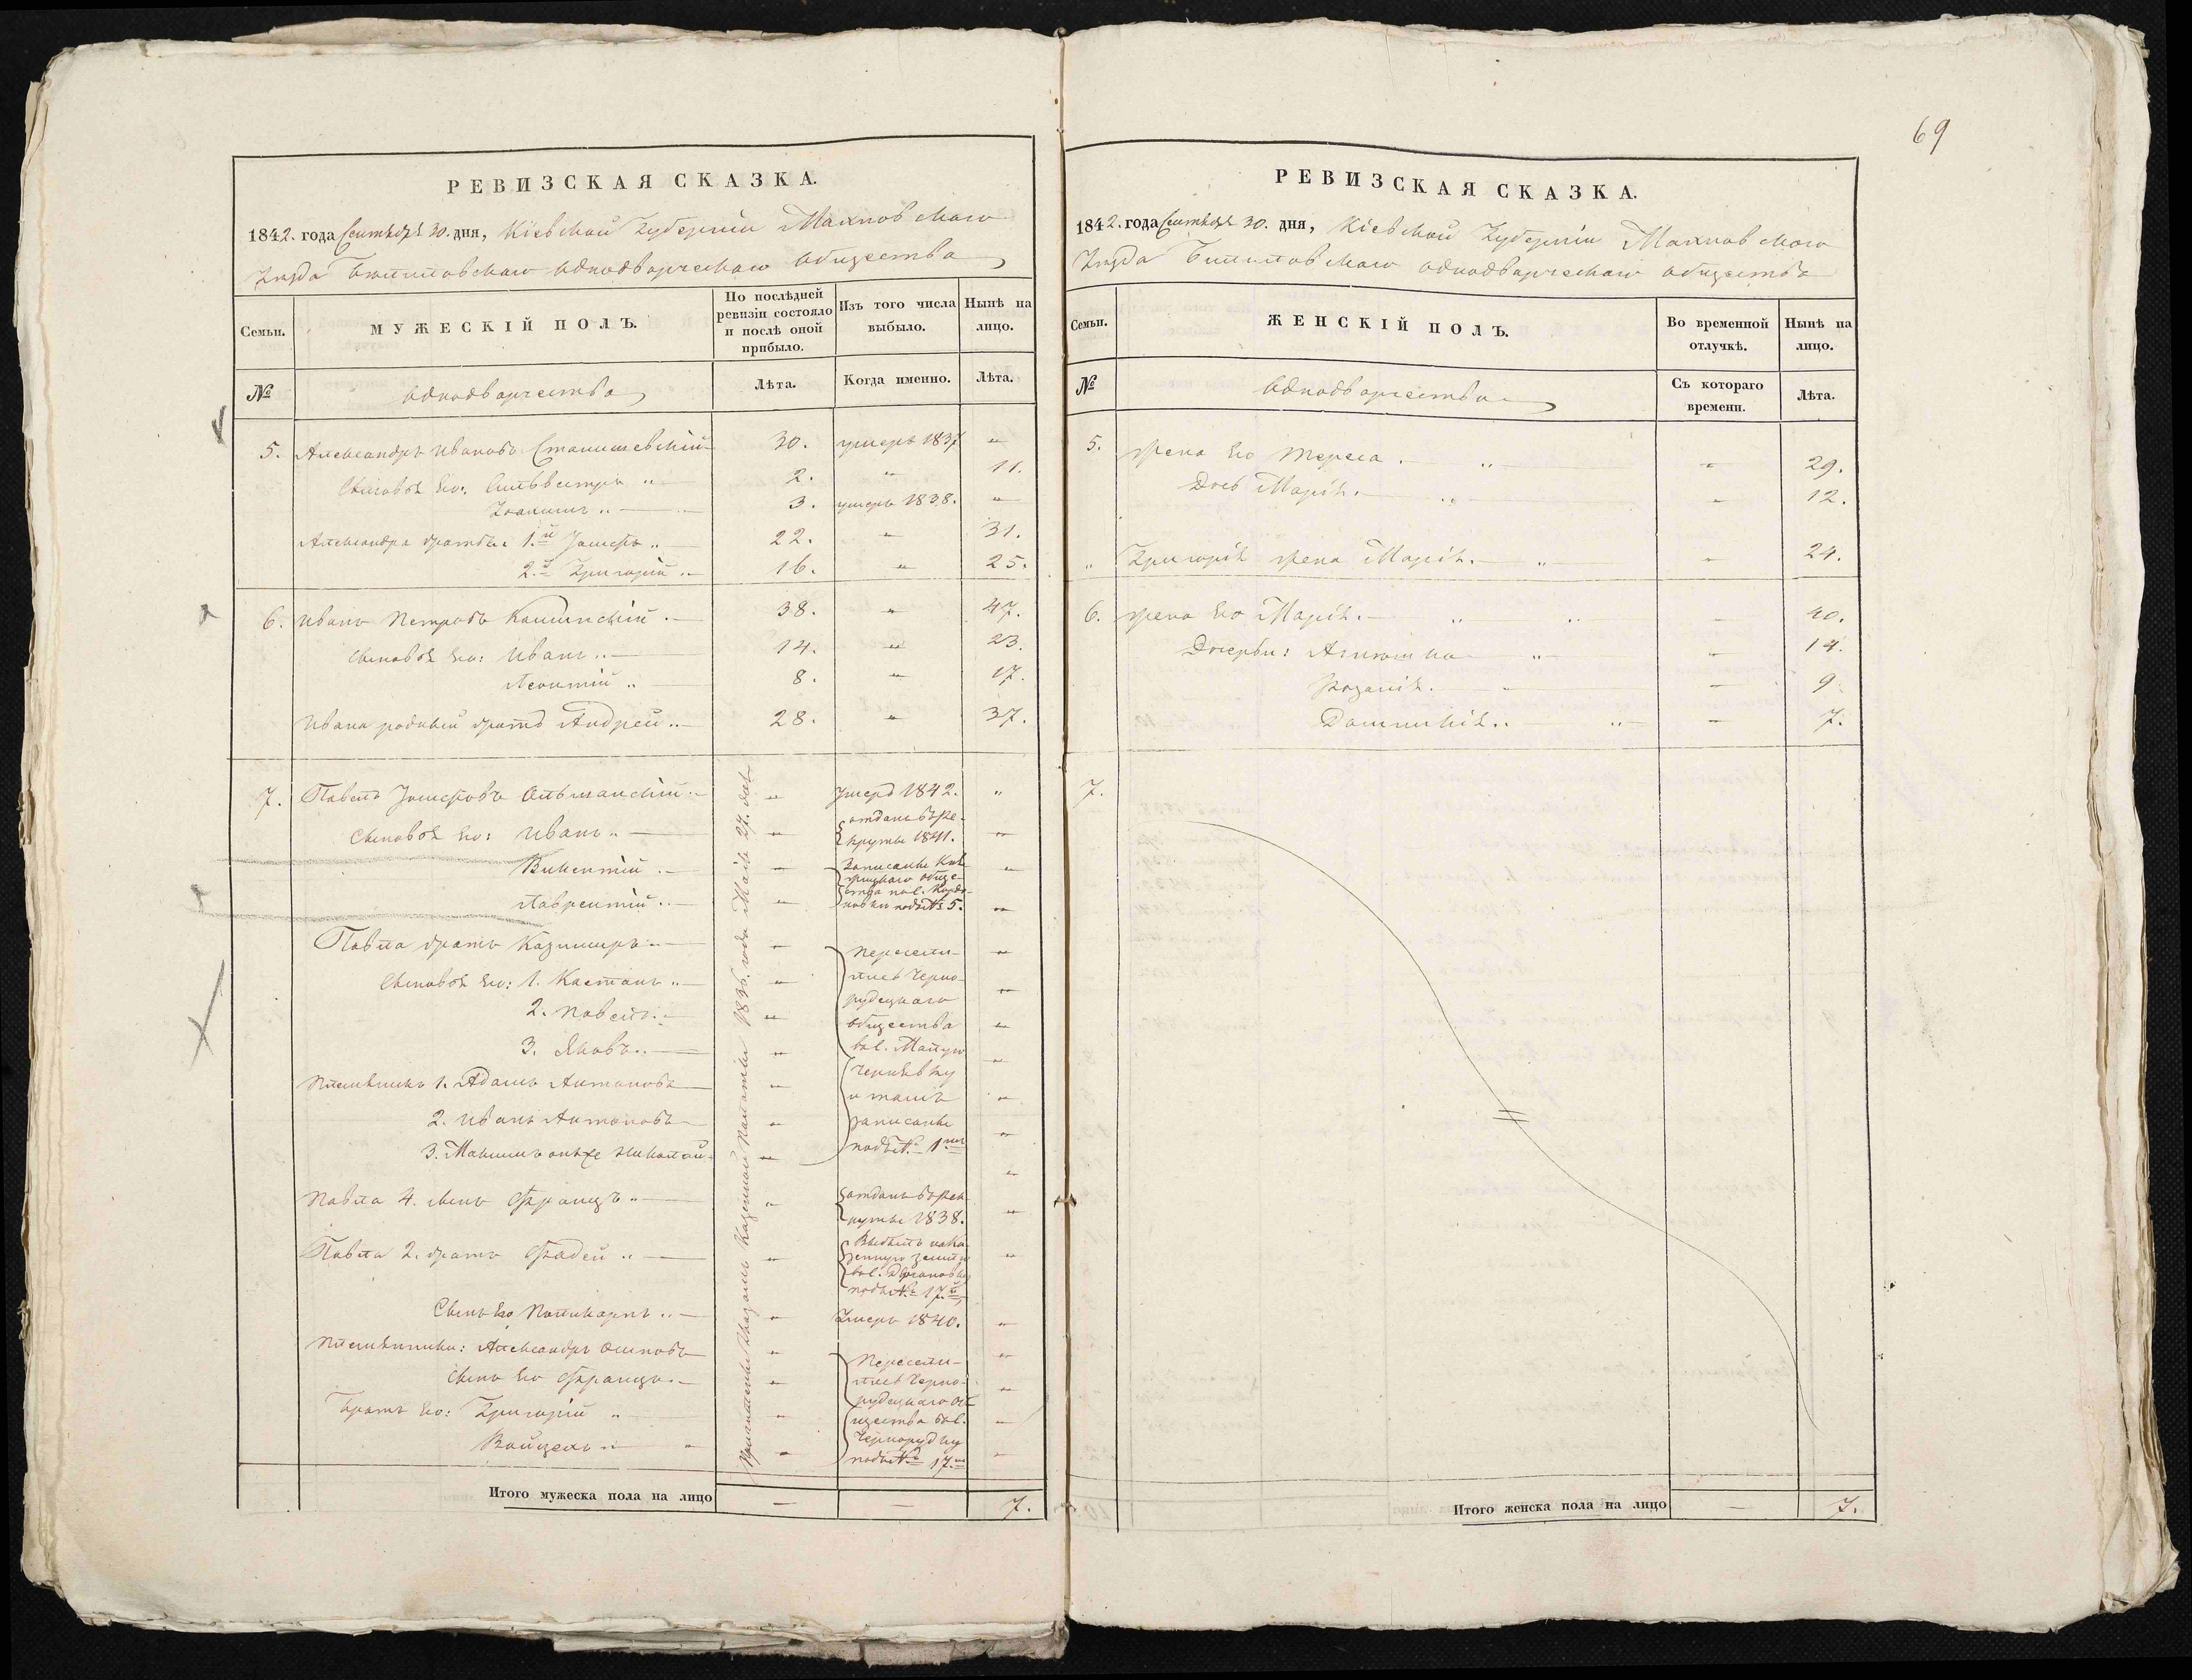 69
РЕВИЗСКАЯ СКАЗКА.
1842. года Сентября 30. дня, Кіевской Губерніи Махновскаго
Уѣзда Однодворческаго Общества
Семьи. МУЖЕСКІЙ ПОЛЪ. По послѣдней ревизіи состояло и послѣ оной прибыло. Изъ того числа выбыло. Нынѣ на лицо.
№ Однодворчества Лѣта. Когда именно. Лѣта.
5. Александръ Ивановъ Станишевскій 30. умеръ 1837 "
Сыновья Его: Сильвестръ " 2. " 11.
Іоакимъ " 3. умеръ 1838. "
Александра братья 1.й Іосифъ " 22. " 31.
2.й Григорій " 16. " 25.
6. Иванъ Петровъ 38. " 47.
Сыновья Его: Иванъ " 14. " 23.
Леонтій " 8. " 17.
Ивана родный братъ Андрей " 28. " 37.
Причтены Указомъ Казенной Палаты 1836. года Мая 27. дня
7. Павелъ Іосифовъ Ольшанскій " Умеръ 1842. "
Сыновья Его: Иванъ " " отданъ въ ре-
круты 1841. "
Викентій " " Записаны
общества "
Лаврентій " " подъ № 5. "
Павла братъ Казимиръ " " Пересели- "
Сыновья Его: 1. Каетанъ " " лись Черно- "
рудецкаго
2. Павелъ " " общества "
3. Яковъ " " вол. "
Племянники 1. Адамъ Антоновъ " "
и тамъ
2. Иванъ Антоновъ " записаны "
3. Николай " подъ № 1мъ "
Павла 4. сынъ Францъ " " отданъ въ рек-
руты 1838. "
Павла 2. братъ Фадей " " на Ка-
зенную землю "
вол.
подъ № 17.й
Сынъ Его Поликарпъ " " Умеръ 1840. "
Племянники: Александръ Осиповъ " Пересели- "
Сынъ Его Францъ " " лись Черно- "
рудецкаго об-
Братъ Его: Григорій " " щества вол. "
Чернорудку
Войцехъ " " подъ № 17.мъ "
Итого мужеска пола на лицо — — 7.
РЕВИЗСКАЯ СКАЗКА.
1842. года Сентября 30. дня, Кіевской Губерніи Махновскаго
Уѣзда Однодворческаго Общества
Семьи. ЖЕНСКІЙ ПОЛЪ. Во временной отлучкѣ. Нынѣ на лицо.
№ Однодворчества Съ котораго времени. Лѣта.
5. Жена Его Тереса " " 29.
Дочь Марія " " 12.
" Григорія жена Марія " " 24.
6. Жена Его Марія " " " 40.
Дочери: " " 14.
Розалія " " 9.
Доминикія " " " 7.
7.
Итого женска пола на лицо — 7.